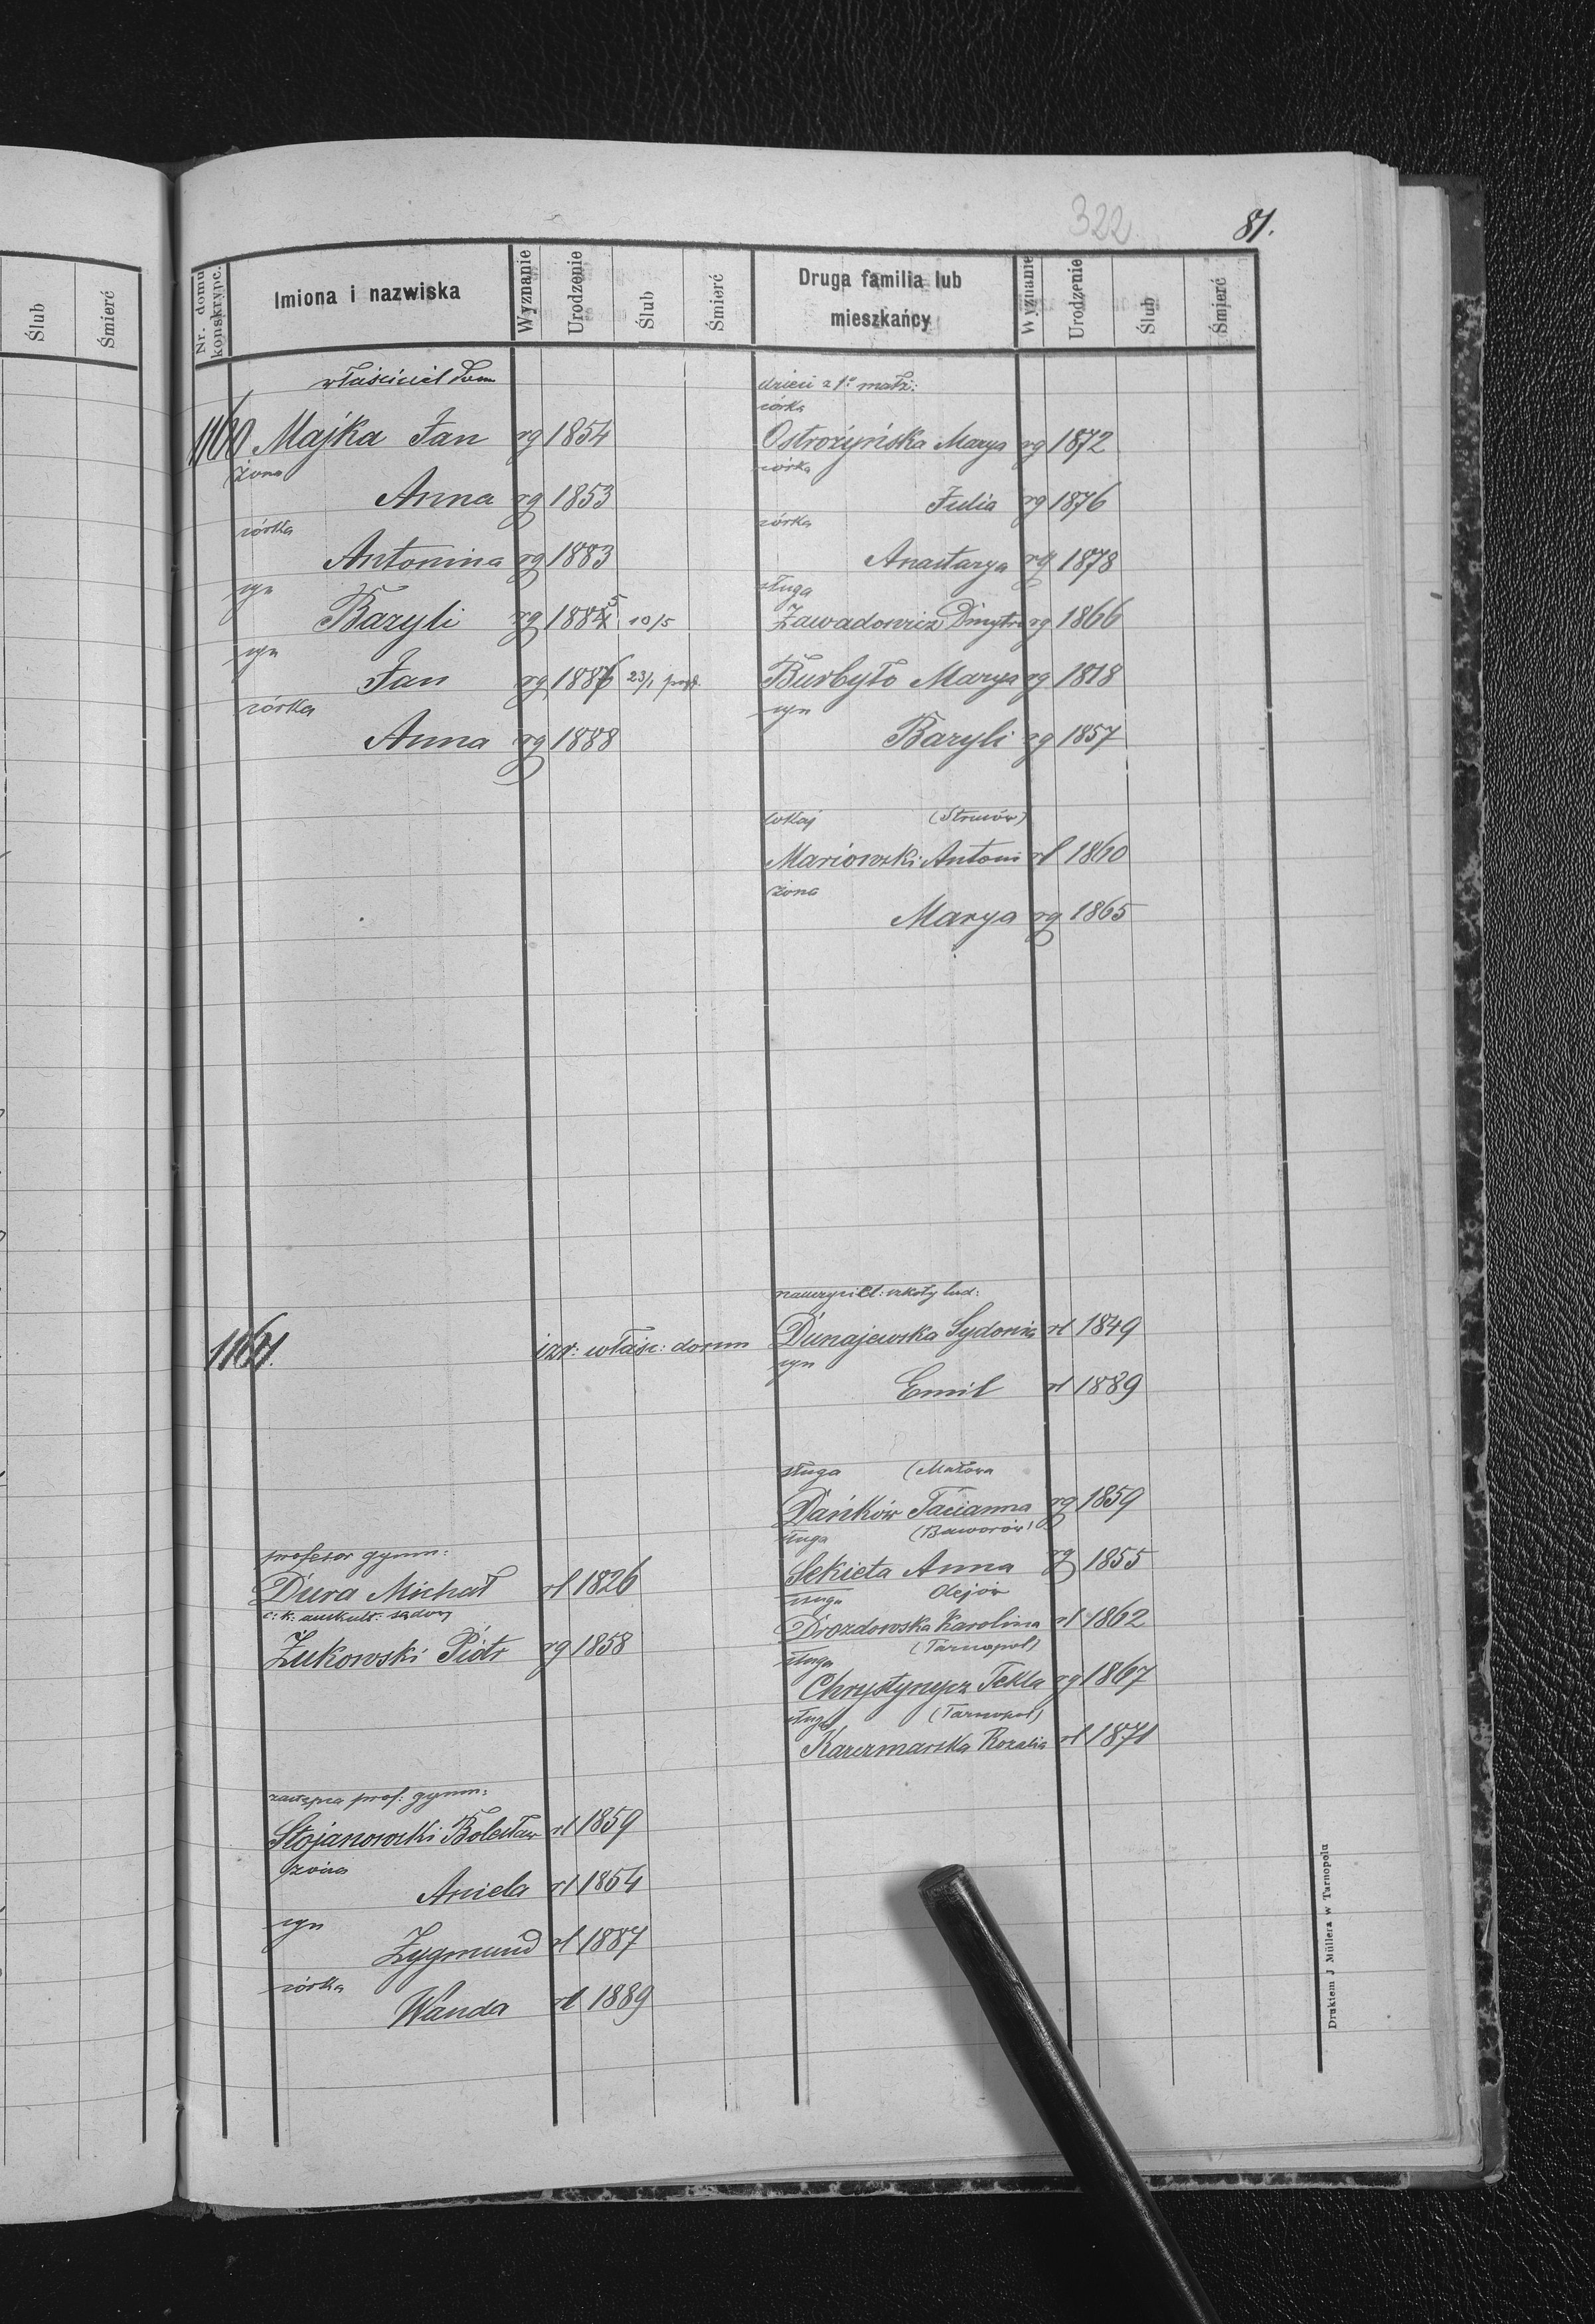 Ślub
Śmierć
322.
81.
Nr. domu konskrypc.
Imiona i nazwiska
Wyznanie
Urodzenie
Ślub
Śmierć
Druga familia lub
mieszkańcy
Wyznanie
Urodzenie
Ślub
Śmierć
właściciel domu
1160 Majka Jan rg 1854
żona
Anna rg 1853
córka
Antonina rg 1883
syn
Bazyli rg 1885 10/5
syn
Jan rg 1886 23/1
córka
Anna rg 1888
dzieci z 1º małż:
córka
Ostrożyńska Marya rg 1872
córka
Julia rg 1876
córka
Anastazya rg 1878
sługa
Zawadowicz Dmytro rg 1866
Burbyło Marya rg 1818
syn
Bazyli rg 1857
lokaj (Strusów)
Mariowski Antoni rl 1860
żona
Marya rg 1865
1161.
izr: właśc: domu
nauczyciel: szkoły lud:
Dunajewska Sydonia rl 1849
syn
Emil rl 1889
sługa
Dańków Tacianna rg 1859
sługa (Baworów)
Sekieta Anna rg 1855
sługa Olejów
Drozdowska Karolina rl 1862
sługa (Tarnopol)
Chrystynycz Tekla rg 1867
sługa (Tarnopol)
Karczmarska Rozalia rl 1871
profesor gymn:
Dura Michał rl 1826
c: k: auskult: sądowy
Żukowski Piotr rg 1858
zastępca prof: gymn:
Stojanowski Bolesław rl 1859
żona
Aniela rl 1854
syn
Zygmund rl 1887
córka
Wanda rl 1889
Drukiem J Müllera w Tarnopolu